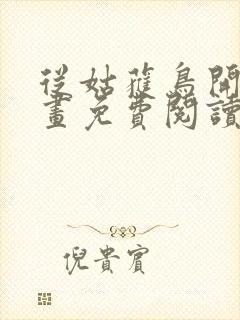 從姑蘿鳥開
畫免費閱讀
倪貴賓